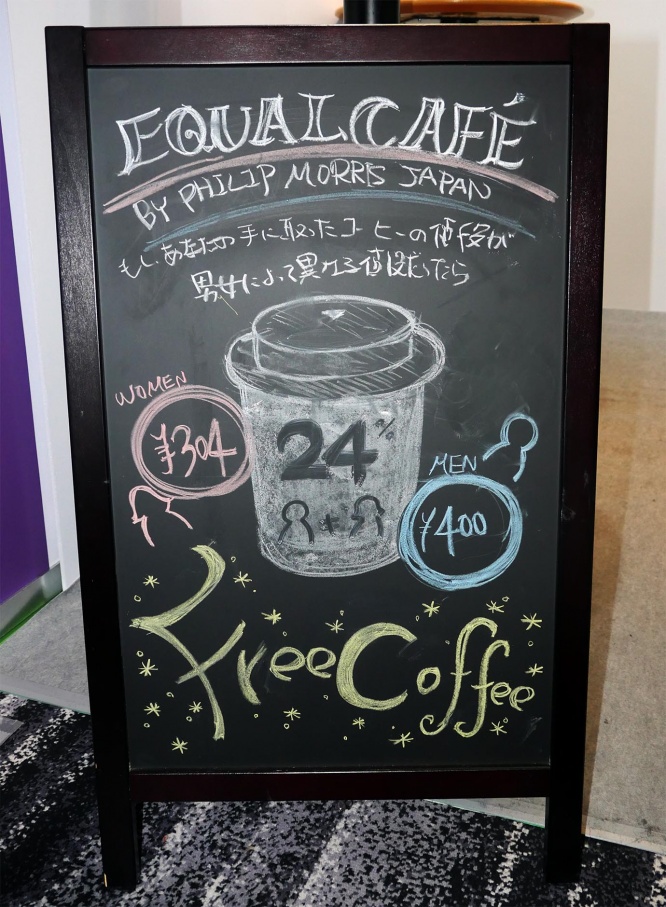 EQUAL CAFÉ
BY PHILIP MORRIS JAPAN
もし、あなたの手に取ったコーヒーの値段が
男女によって異なる値段だったら
WOMEN
¥304
24%
MEN
¥400
Free Coffee